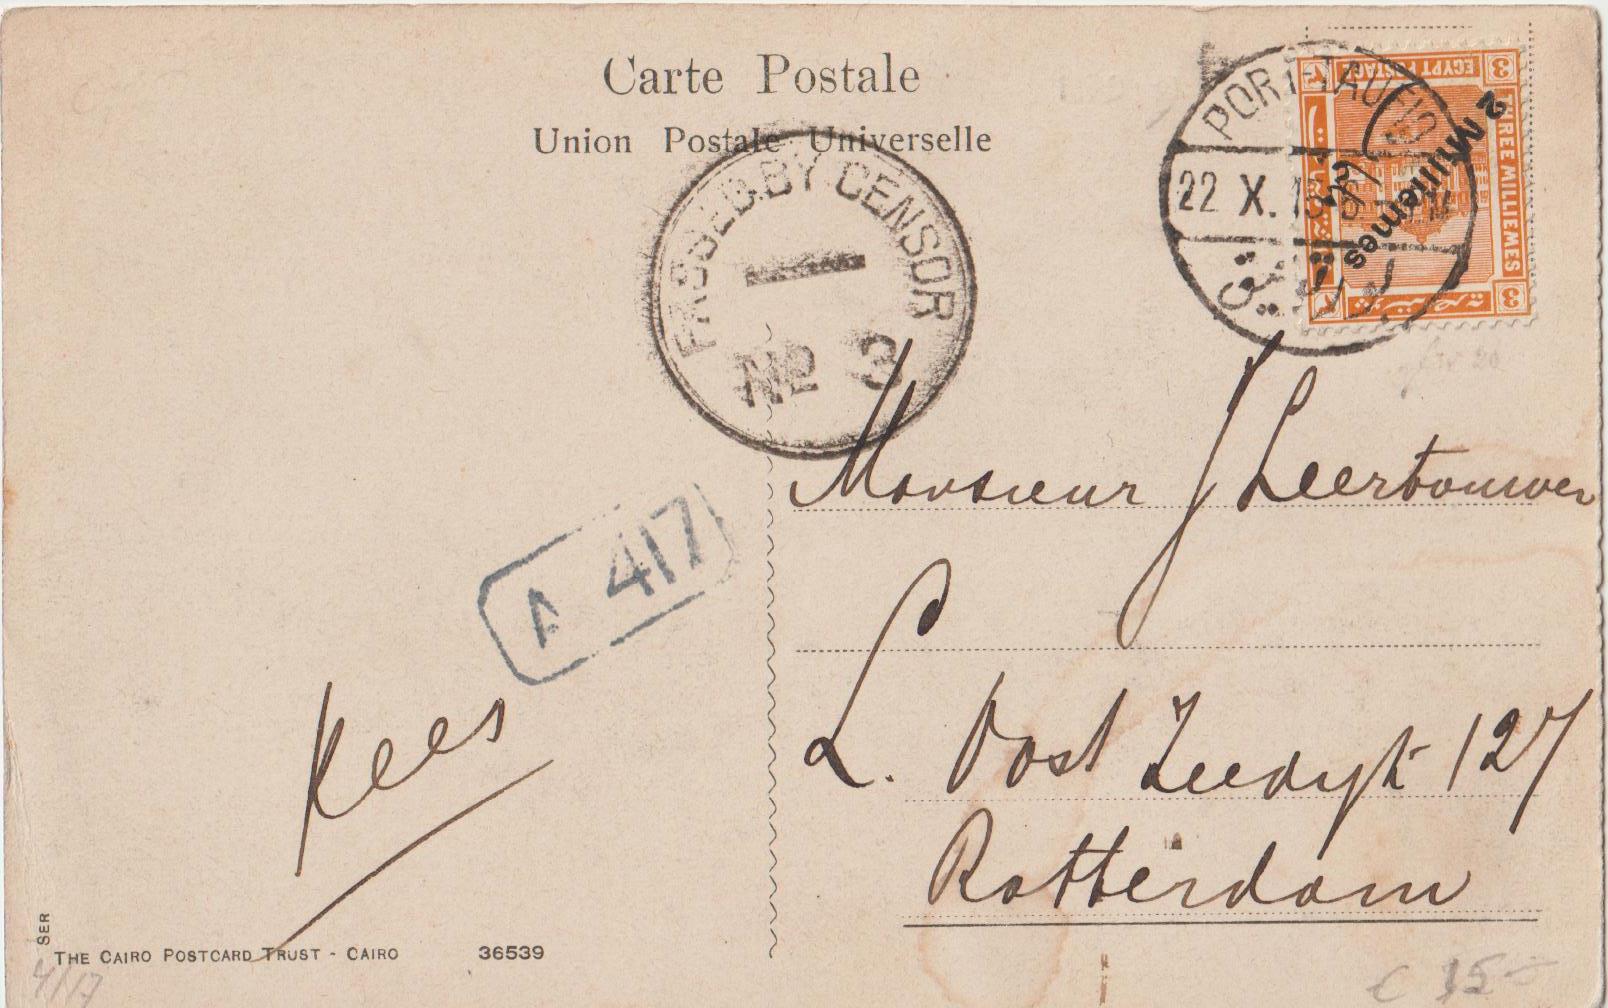 Carte Postale
Union Postale Universelle
PASSED.BY CENSOR
No 3
PORT-TAUFIQ
22 X. 15
EGYPT POSTAGE
THREE MILLIEMES
3
3
2 Milliemes
A 417
Monsieur J Leerbouwer
L. Oost Zeedijk 127
Rotterdam
Kees
SER
THE CAIRO POSTCARD TRUST - CAIRO 36539
4/17
€ 15-